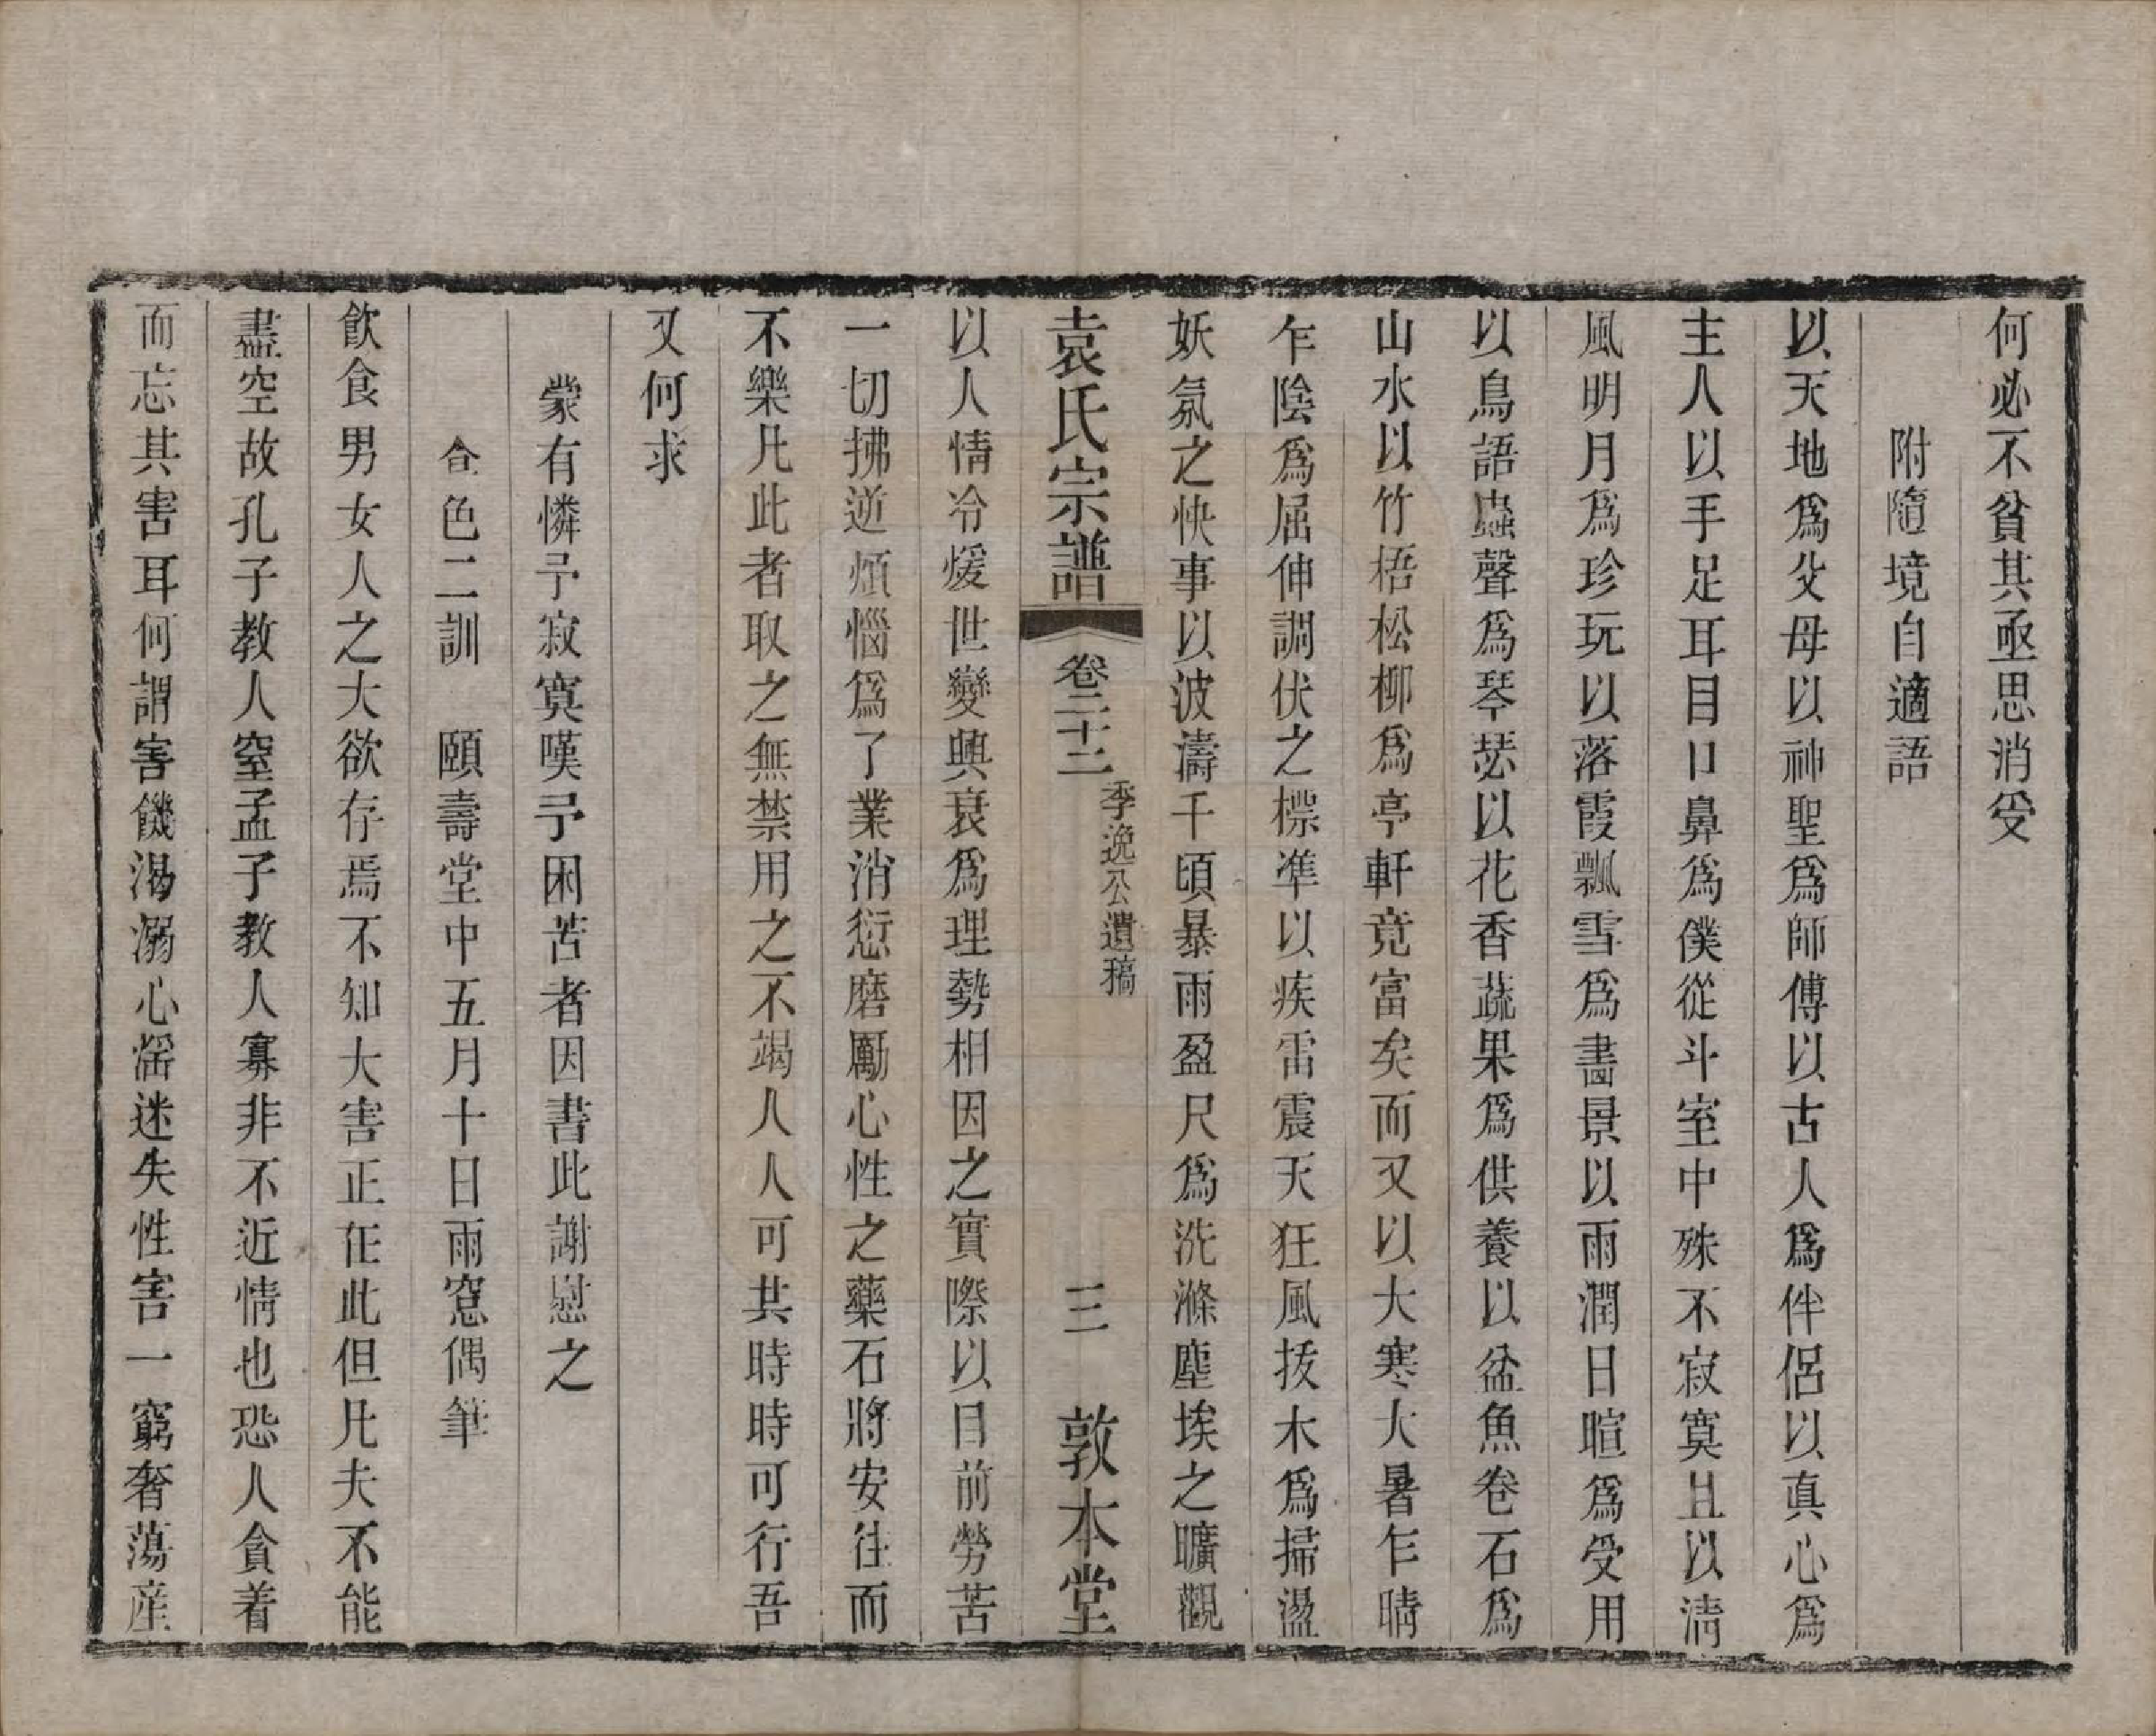 何必不貧其亟思消受
附隨境自適語
以天地爲父母以神聖爲師傅以古人爲伴侶以真心爲
主人以手足耳目口鼻爲僕從斗室中殊不寂寞且以清
風明月爲珍玩以落霞飄雪爲畵景以雨潤日暄爲受用
以鳥語蟲聲爲琴瑟以花香蔬果爲供養以盆魚卷石爲
山水以竹梧松柳爲亭軒竟富矣而又以大寒大暑乍晴
乍陰爲屈伸調伏之標準以疾雷震天狂風拔木爲掃盪
妖氛之快事以波濤千頃暴雨盈尺爲洗滌塵埃之曠觀
袁氏宗譜 卷二十二 季逸公遺稿 三 敦本堂
以人情冷煖世變興衰爲理勢相因之實際以目前勞苦
一切拂逆煩惱爲了業消愆磨勵心性之藥石將安往而
不樂凡此者取之無禁用之不竭人人可共時時可行吾
又何求
蒙有憐予寂寞嘆予困苦者因書此謝慰之
食色二訓 頤壽堂中五月十日雨窓偶筆
飲食男女人之大欲存焉不知大害正在此但凡夫不能
盡空故孔子教人窒孟子教人寡非不近情也恐人貪着
而忘其害耳何謂害饑渴溺心婬迷失性害一窮奢蕩産